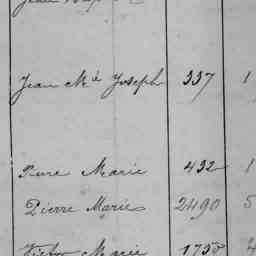 Jean M.ie Joseph 337 1
Pierre Marie 432 1
Pierre Marie 2490 5
Victor Marie 1750